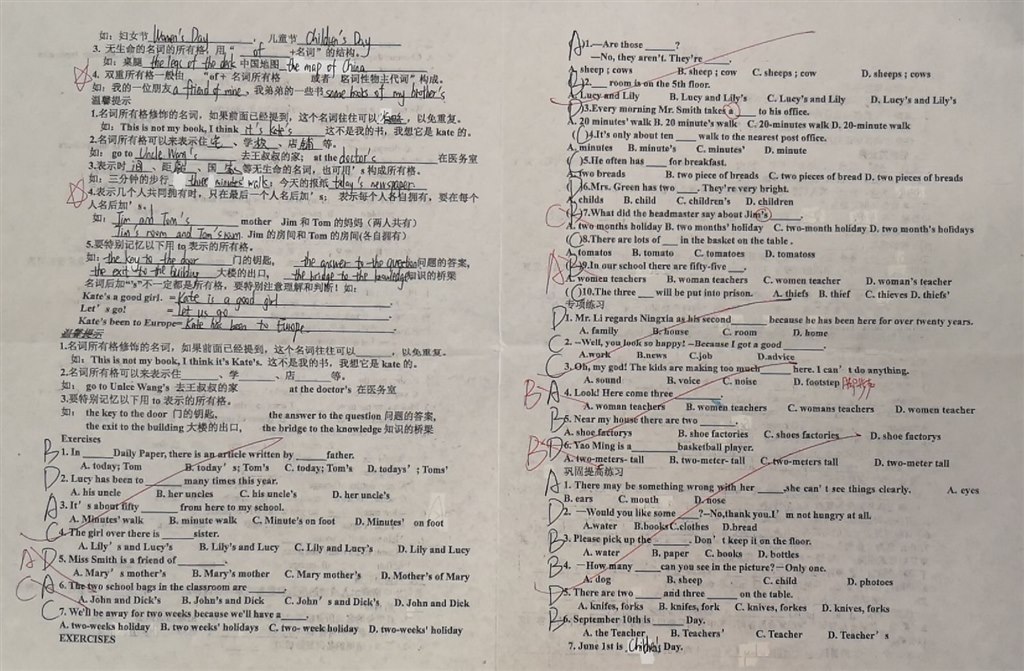 如：妇女节 Women's Day ，儿童节 Children's Day
3. 无生命的名词的所有格，用“ of +名词”的结构。
如：桌腿 the legs of the desk 中国地图 the map of China
4. 双重所有格一般由 “of+ 名词所有格 或者 名词性物主代词”构成。
如：我的一位朋友 a friend of mine，我弟弟的一些书 some books of my brother's
温馨提示
1.名词所有格修饰的名词，如果前面已经提到，这个名词往往可以 ，以免重复。
如：This is not my book, I think it's Kate's 这不是我的书，我想它是 kate 的。
2.名词所有格可以来表示住 宅 、学 校 、店 铺 等。
如：go to Uncle Wang's 去王叔叔的家； at the doctor's 在医务室
3.表示时 间 、距 离 、国 家 等无生命的名词，也可用's 构成所有格。
如：三分钟的步行 three minutes' walk；今天的报纸 today's newspaper
4.表示几个人共同拥有时，只在最后一个人名后加's； 表示每个人各自拥有，要在每个
人名后加's。
如： Jim and Tom's mother Jim 和 Tom 的妈妈（两人共有）
Jim's room and Tom's room. Jim 的房间和 Tom 的房间(各自拥有)
5.要特别记忆以下用 to 表示的所有格。
如：the key to the door 门的钥匙， the answer to the question 问题的答案，
the exit to the building 大楼的出口， the bridge to the knowledge 知识的桥梁
名词后加“'s”不一定都是所有格，要特别注意理解和判断！如：
Kate's a good girl. = Kate is a good girl
Let's go! = Let us go
Kate's been to Europe= Kate has been to Europe.
温馨提示
1.名词所有格修饰的名词，如果前面已经提到，这个名词往往可以______，以免重复。
如：This is not my book, I think it's Kate's. 这不是我的书，我想它是 kate 的。
2.名词所有格可以来表示住______、学______、店______等。
如： go to Unlce Wang's 去王叔叔的家 at the doctor's 在医务室
3.要特别记忆以下用 to 表示的所有格。
如： the key to the door 门的钥匙， the answer to the question 问题的答案，
the exit to the building 大楼的出口， the bridge to the knowledge 知识的桥梁
Exercises
B 1. In ______Daily Paper, there is an article written by ______father.
A. today; Tom B. today's; Tom's C. today; Tom's D. todays'; Toms'
D 2. Lucy has been to ______ many times this year.
A. his uncle B. her uncles C. his uncle's D. her uncle's
A 3. It's about fifty ______ from here to my school.
A. Minutes' walk B. minute walk C. Minute's on foot D. Minutes' on foot
C 4. The girl over there is ______sister.
A. Lily's and Lucy's B. Lily's and Lucy C. Lily and Lucy's D. Lily and Lucy
A D 5. Miss Smith is a friend of ______.
A. Mary's mother's B. Mary's mother C. Mary mother's D. Mother's of Mary
C A 6. The two school bags in the classroom are ______.
A. John and Dick's B. John's and Dick C. John's and Dick's D. John and Dick
C 7. We'll be away for two weeks because we'll have a______.
A. two-weeks holiday B. two weeks' holidays C. two- week holiday D. two-weeks' holiday
EXERCISES
A 1.—Are those ______?
—No, they aren't. They're______.
A. sheep ; cows B. sheep ; cow C. sheeps ; cow D. sheeps ; cows
2.___ room is on the 5th floor.
A. Lucy and Lily B. Lucy and Lily's C. Lucy's and Lily D. Lucy's and Lily's
3.Every morning Mr. Smith takes a ____ to his office.
A. 20 minutes' walk B. 20 minute's walk C. 20-minutes walk D. 20-minute walk
4.It's only about ten ____ walk to the nearest post office.
A. minutes B. minute's C. minutes' D. minute
5.He often has ____ for breakfast.
A. two breads B. two piece of breads C. two pieces of bread D. two pieces of breads
6.Mrs. Green has two ____. They're very bright.
A. childs B. child C. children's D. children
7.What did the headmaster say about Jim's ______.
A. two months holiday B. two months' holiday C. two-month holiday D. two month's holidays
8.There are lots of ___ in the basket on the table .
A. tomatos B. tomato C. tomatoes D. tomatoss
9.In our school there are fifty-five ___.
A. women teachers B. woman teachers C. women teacher D. woman's teacher
10.The three ___ will be put into prison. A. thiefs B. thief C. thieves D. thiefs'
专项练习
D 1. Mr. Li regards Ningxia as his second ______ because he has been here for over twenty years.
A. family B. house C. room D. home
C 2. –Well, you look so happy! –Because I got a good ______.
A.work B.news C.job D.advice
C 3. Oh, my god! The kids are making too much ______ here. I can't do anything.
A. sound B. voice C. noise D. footstep
B A 4. Look! Here come three ______.
A. woman teachers B. women teachers C. womans teachers D. women teacher
B 5. Near my house there are two ______.
A. shoe factorys B. shoe factories C. shoes factories D. shoe factorys
B D 6. Yao Ming is a ______basketball player.
A. two-meters- tall B. two-meter- tall C. two-meters tall D. two-meter tall
巩固提高练习
A 1. There may be something wrong with her _____,she can't see things clearly. A. eyes
B. ears C. mouth D. nose
D 2. —Would you like some _____?--No,thank you.I'm not hungry at all.
A.water B.books C.clothes D.bread
B 3. Please pick up the _____. Don't keep it on the floor.
A. water B. paper C. books D. bottles
B 4. —How many _____can you see in the picture?—Only one.
A. dog B. sheep C. child D. photoes
D 5. There are two _____ and three _____ on the table.
A. knifes, forks B. knifes, fork C. knives, forkes D. knives, forks
B 6. September 10th is ______ Day.
A. the Teacher B. Teachers' C. Teacher D. Teacher's
7. June 1st is Children's Day.